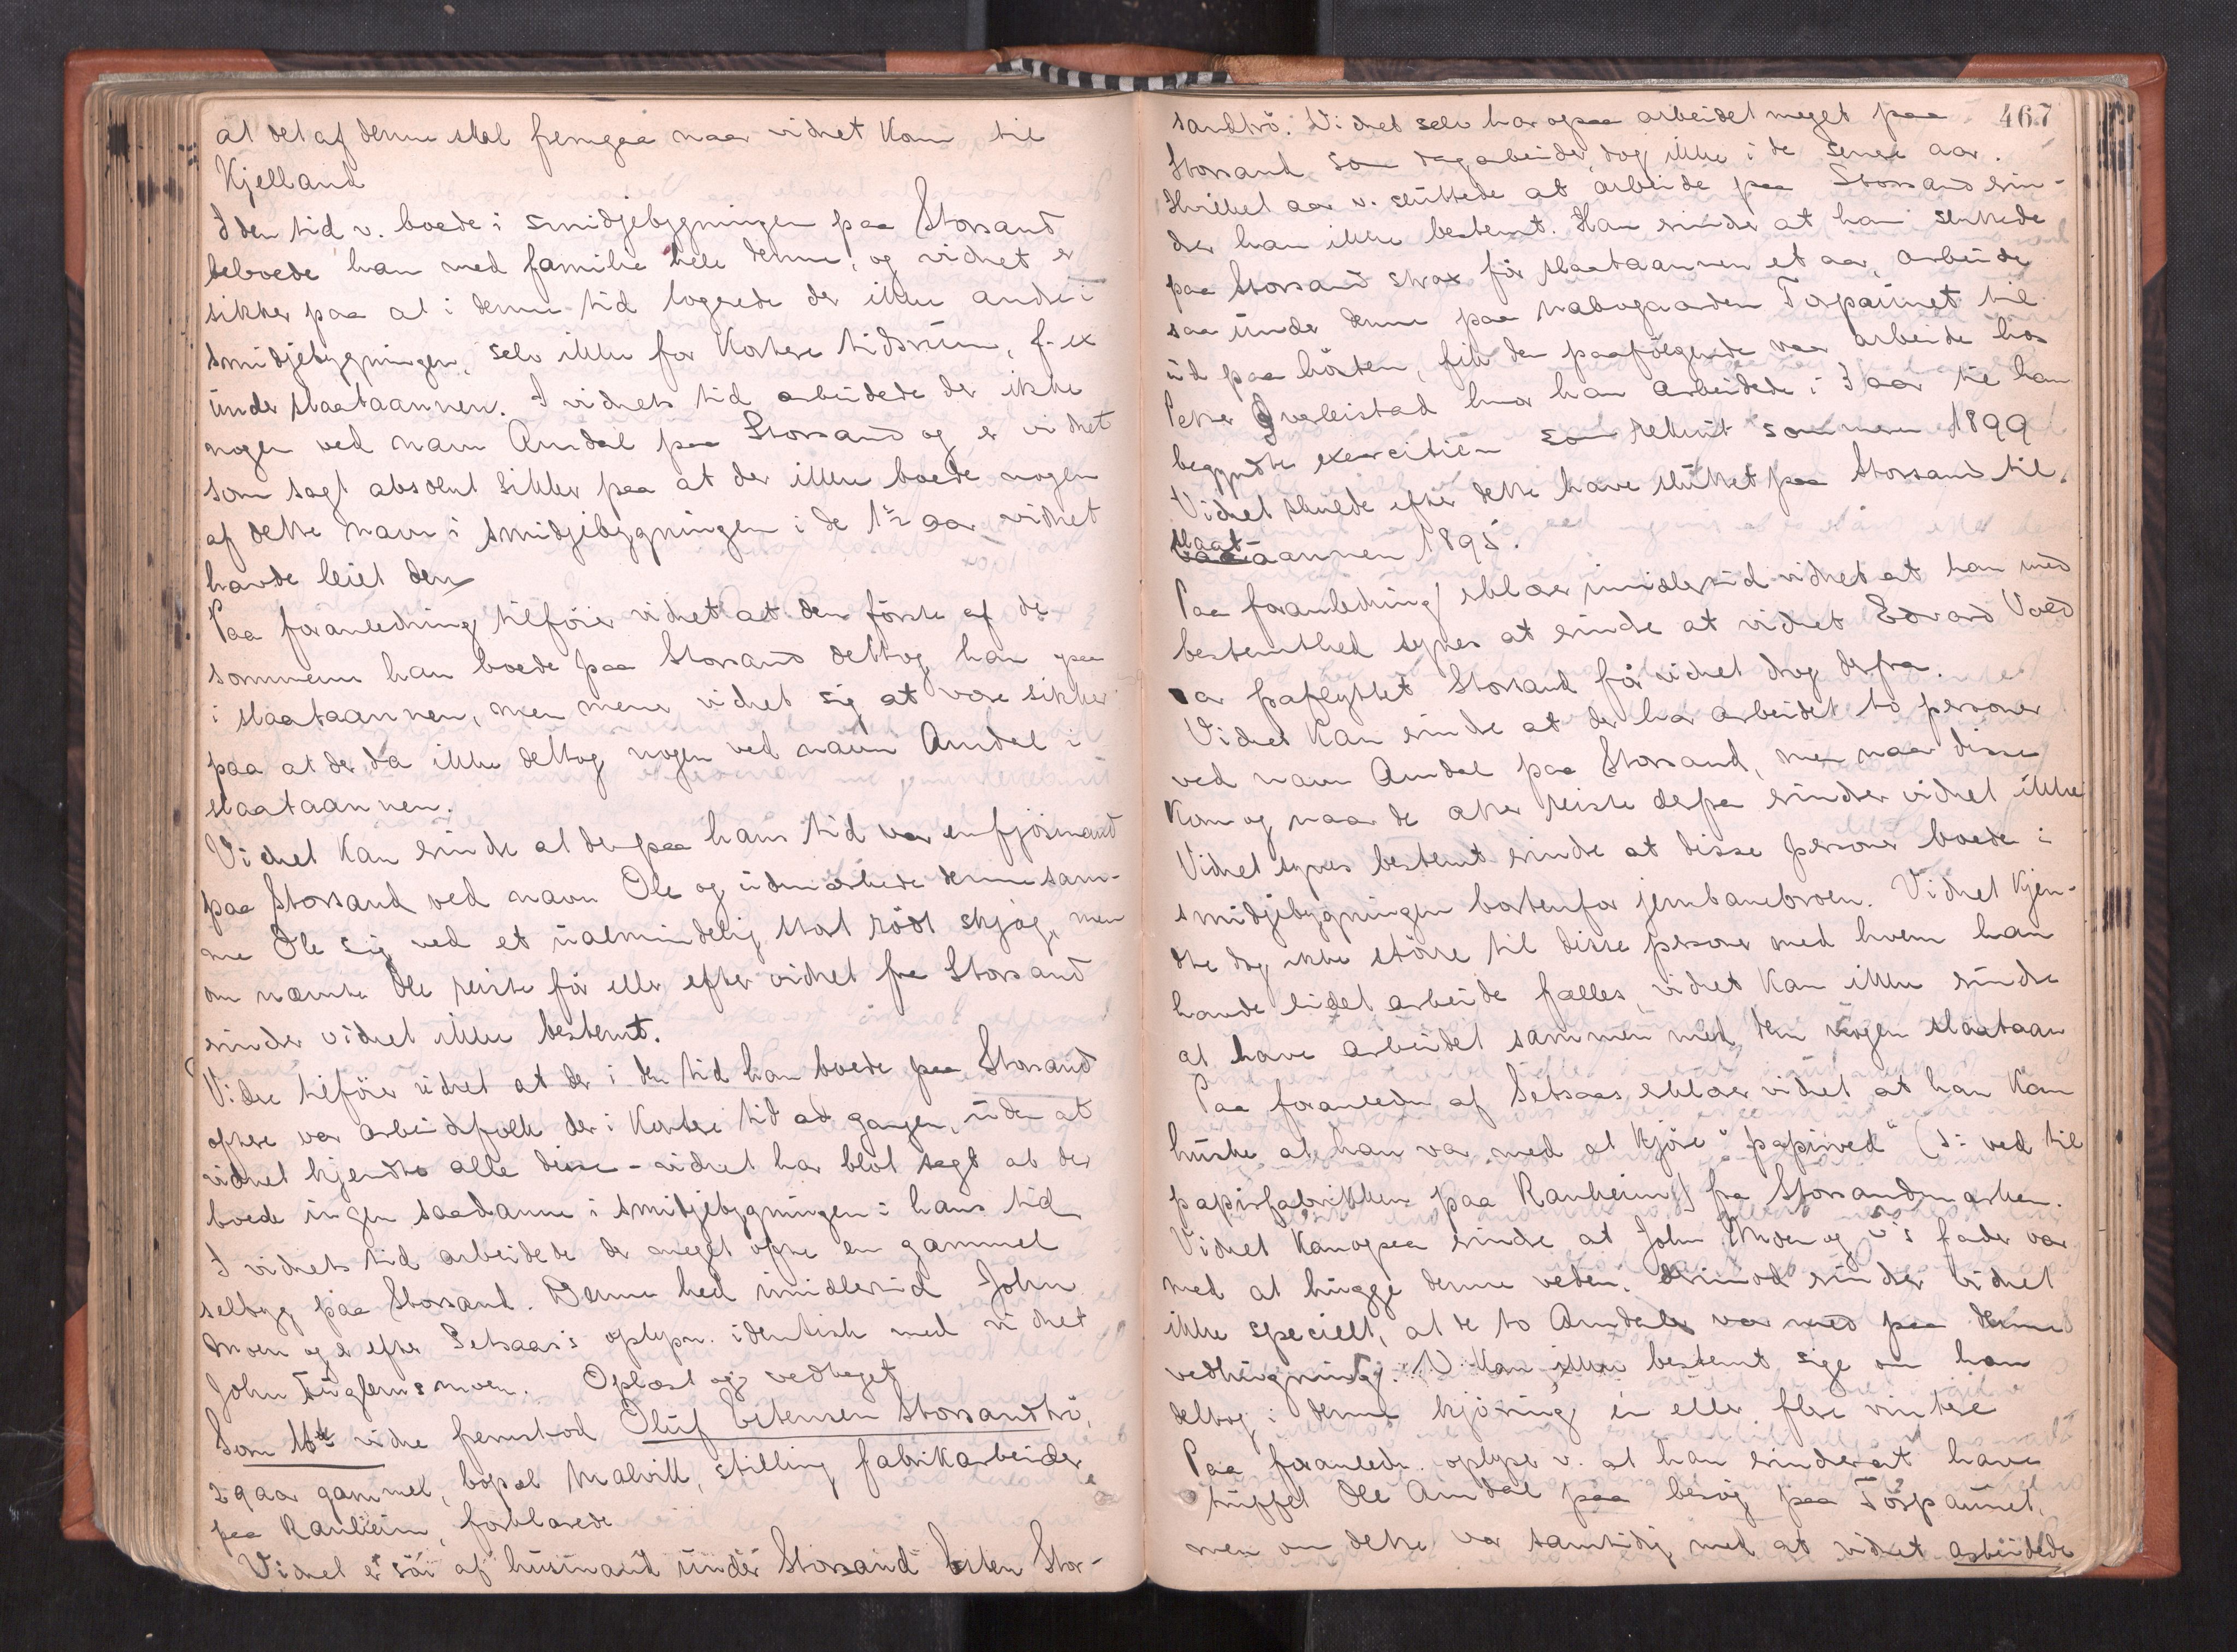 at det af denne skal fremgaa naar vidnet kom til
Kjelland
I den tid v. boede i smidjebygningen paa Storsand
beboede han med familie hele denne, og vidnet er
sikker paa at i denne tid logerede der ikke andre i
smidjebygningen, selv ikke for kortere tidsrum, f. ex
under slaataannen. I vidnets tid arbeidede der ikke
nogen ved navn Amdal paa Storsand og er vidnet
som sagt absolut sikker paa at der ikke boede nogen
af dette navn i smidjebygningen i de 1½ aar vidnet
havde leiet den
Paa foranledning tilføier vidnet at den første af de
sommerne han boede paa Storsand deltog han ogsaa
i slaataannen, men mener vidnet sig at være sikker
paa at der da ikke deltog nogen ved navn Amdal i
slaataannen.
Vidnet kan erindre at der paa hans tid var en fjøsmand
paa Storsand ved navn Ole og udmærkede denne sam-
me Ole sig ved et ualmindelig stort rødt skjæg, men
om nævnte Ole reiste før eller efter vidnet fra Storsand
erindrer vidnet ikke bestemt.
Vidre tilføier vidnet at der i den tid han boede paa Storsand
oftere var arbeidsfolk der i kortere tid ad gangen, uden at
vidnet kjendte alle disse - vidnet har blot sagt at der
boede ingen saadanne i smidjebygningen i hans tid
I vidnets tid arbeidede der meget ofte en gammel
selbyg paa Storsand. Denne hed imidlertid John
Moen og er efter Setsaas's oplysn. identisk med vidnet
John Fuglemsmoen. Oplæst og vedtaget
Som 16de vidne fremstod Oluf Estensen Storsandtrø,
29 aar gammel, bopæl Malvik, stilling fabrikarbeider
paa Ranheim, forklarede
Vidnet er søn af husmand under Storsand Esten Stor-
467
sandtrø. Vidnet selv har ogsaa arbeidet meget paa
Storsand som dagarbeider dog ikke i de senere aar.
Hvilket aar v. sluttede at arbeide paa Storsand erin-
drer han ikke bestemt. Han erindrer at han sluttede
paa Storsand strax før slaataannen et aar, arbeide
saa under denne paa nabogaarden Torpaunet til
ud paa høsten, fik den paafølgende vaar arbeide hos
Petter Kverleistad hvor han arbeidede i 3 aar til han
begyndte exercitien som rekrut sommeren 1899
Vidnet skulde efter dette have sluttet paa Storsand til
slaat-
aannen 1895.
Paa foranledning erklærer imidlertid vidnet at han med
bestemthed synes at erindre at vidnet Edvard Vold
var fraflyttet Storsand før vidnet drog derfra.
Vidnet kan erindre at der har arbeidet to personer
ved navn Amdal paa Storsand, men naar disse
kom og naar de atter reiste derfra erindrer vidnet ikke
Vidnet synes bestemt erindre at disse personer boede i
smidjebygningen bortenfor jernbanebroen. Vidnet kjen-
dte dog ikke større til disse personer med hvem han
havde lidet arbeide fælles, vidnet kan ikke erindre
at have arbeidet sammen med dem nogen slaataan
Paa foranledn af Setsaas erklærer vidnet at han kan
huske at han var med at kjøre "papirved" (d: ved til
papirfabrikken paa Ranheim) fra Storsandmarken.
Vidnet kan ogsaa erindre at John Moen og v's fader var
med at hugge denne veden. Derimod erindrer vidnet
ikke specielt, at de to Amdaler var med paa denne
vedhugning. V. kan ikke bestemt sige om han
deltog i denne kjøring en eller flere vintere
Paa foranledn. oplyser v. at han erindrer at have
truffet Ole Amdal paa besøg paa Torpaunet,
men om dette var samtidig med at vidnet arbeidede